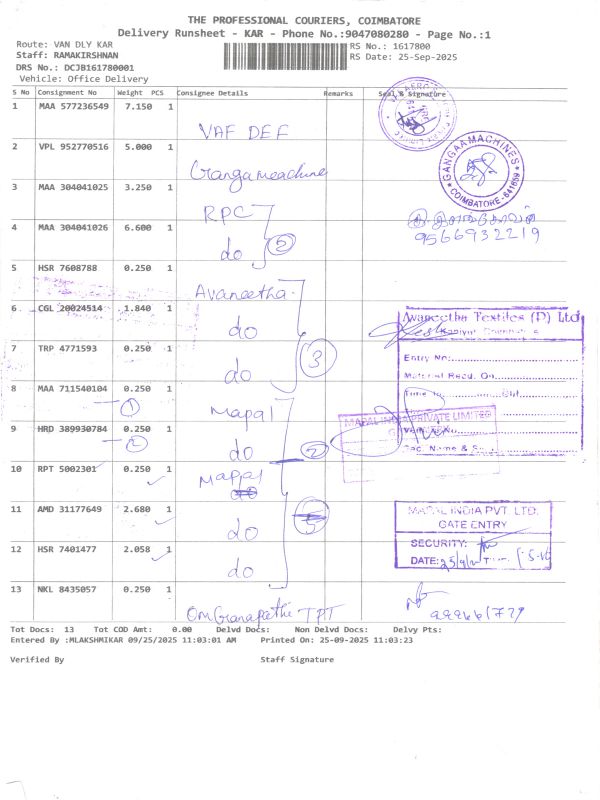 THE PROFESSIONAL COURIERS, COIMBATORE
Delivery Runsheet - KAR - Phone No.:9047080280 - Page No.:1
Route: VAN DLY KAR
RS No.: 1617800
Staff: RAMAKIRSHNAN
RS Date: 25-Sep-2025
DRS No.: DCJB161780001
Vehicle: Office Delivery
S No Consignment No Weight PCS Consignee Details Remarks Seal & Signature
1 MAA 577236549 7.150 1
VAF DEF
2 VPL 952770516 5.000 1
Ganga meachine
GANGAA MACHINES
COIMBATORE - 641659
3 MAA 304041025 3.250 1
RPC
9566932219
4 MAA 304041026 6.600 1
do
2
5 HSR 7608788 0.250 1
Avaneetha
6 CGL 20024514 1.840 1
do
Avaneetha Textiles (P) Ltd
Entry No:
Material Recd. On
7 TRP 4771593 0.250 1
do
3
8 MAA 711540104 0.250 1
1
Mapal
MAPAL INDIA PRIVATE LIMITED
9 HRD 389930784 0.250 1
2
do
2
Sec. Name & S
10 RPT 5002301 0.250 1
Mappal
11 AMD 31177649 2.680 1
do
MAPAL INDIA PVT. LTD.
GATE ENTRY
12 HSR 7401477 2.058 1
do
SECURITY:
DATE:
13 NKL 8435057 0.250 1
Om Ganapathi TPT
Tot Docs: 13 Tot COD Amt: 0.00 Delvd Docs: Non Delvd Docs: Delvy Pts:
Entered By :MLAKSHMIKAR 09/25/2025 11:03:01 AM Printed On: 25-09-2025 11:03:23
Verified By Staff Signature